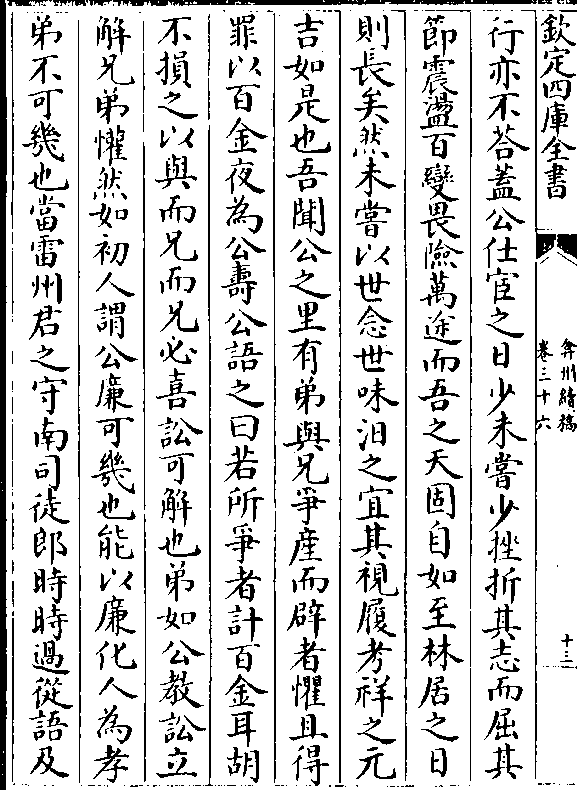 欽定四庫全書
弇州續稿
卷三十六
十三
行亦不荅蓋公仕宦之日少未嘗少挫折其志而屈其
節震盪百變畏險萬途而吾之天固自如至林居之日
則長矣然未嘗以世念世味汨之宜其視履考祥之元
吉如是也吾聞公之里有弟與兄爭產而辟者懼且得
罪以百金夜為公壽公語之曰若所爭者計百金耳胡
不損之以與而兄而兄必喜訟可解也弟如公教訟立
解兄弟懽然如初人謂公廉可幾也能以廉化人為孝
弟不可幾也當雷州君之守南司徒郎時時過從語及